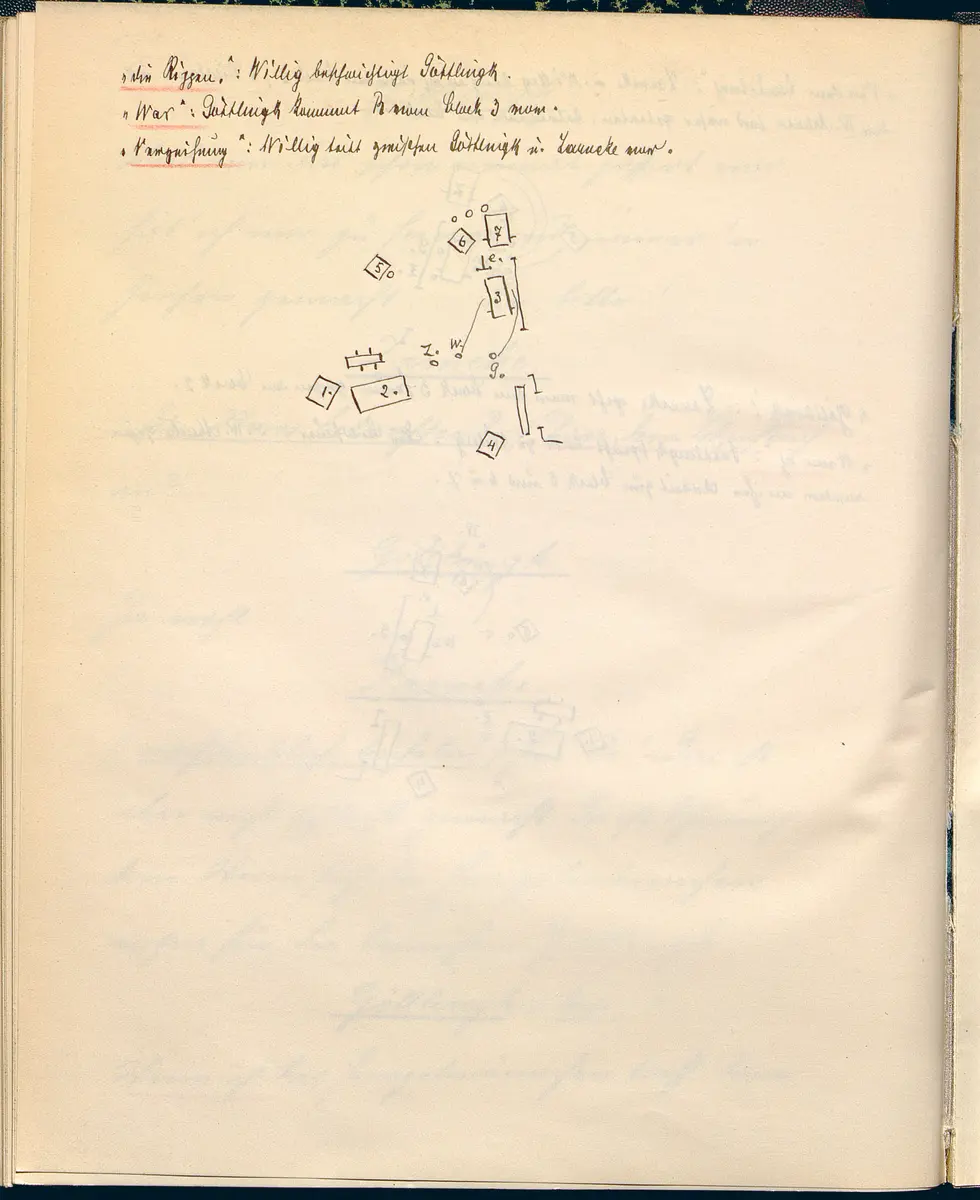 „die Rippen.“: Willig beschwichtigt Göttlingk.
„War“: Göttlingk kommmt R vom block 3 vor.
„Verzeihung“: Willig tritt zwischen Göttlingk u. Zarncke vor.
7
6
5
e.
3
Z.
W.
g.
1.
2.
4